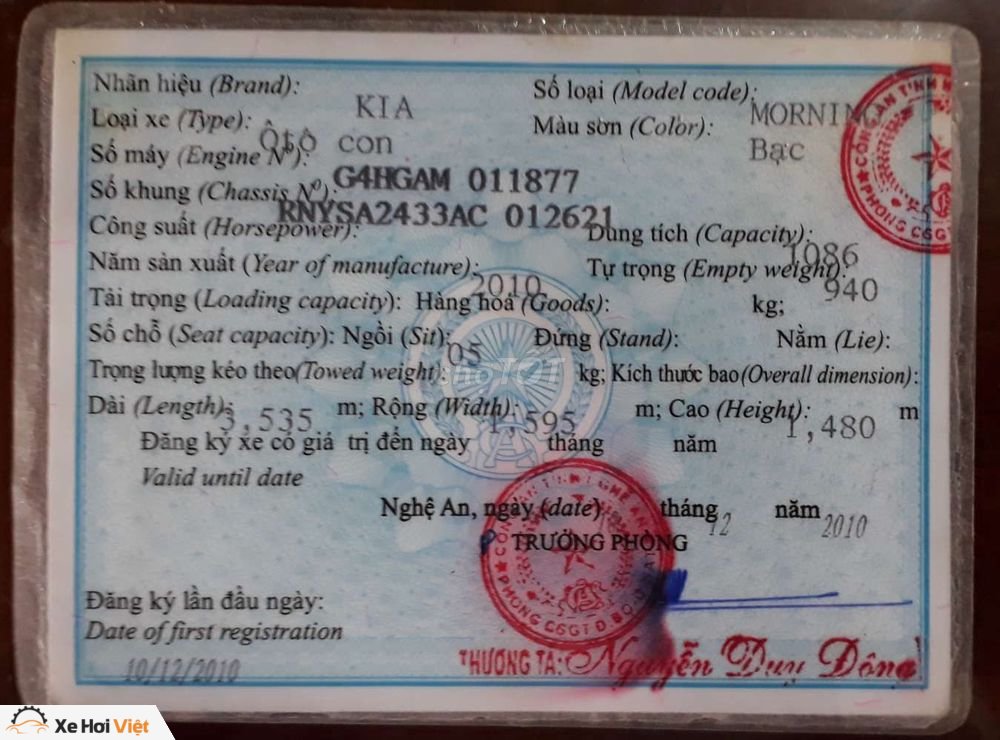 Nhãn hiệu (Brand): KIA Số loại (Model code): MORNING
Loại xe (Type): Ôtô con Màu sơn (Color): Bạc
Số máy (Engine Nº): G4HGAM 011877
Số khung (Chassis Nº): RNYSA2433AC 012621
Công suất (Horsepower): Dung tích (Capacity): 1086
Năm sản xuất (Year of manufacture): 2010 Tự trọng (Empty weight): 940
Tải trọng (Loading capacity): Hàng hóa (Goods): kg;
Số chỗ (Seat capacity): Ngồi (Sit): 05 Đứng (Stand): Nằm (Lie):
Trọng lượng kéo theo(Towed weight): kg; Kích thước bao(Overall dimension):
Dài (Length): 3,535 m; Rộng (Width): 1,595 m; Cao (Height): 1,480 m
Đăng ký xe có giá trị đến ngày tháng năm
Valid until date
Nghệ An, ngày (date) tháng 12 năm 2010
TRƯỞNG PHÒNG
Đăng ký lần đầu ngày:
Date of first registration
10/12/2010
THƯỢNG TÁ: Nguyễn Duy Đông
CÔNG AN TỈNH NGHỆ AN
PHÒNG CSGT Đ.BỘ
CÔNG AN TỈNH
PHÒNG CSGT
Xe Hơi Việt